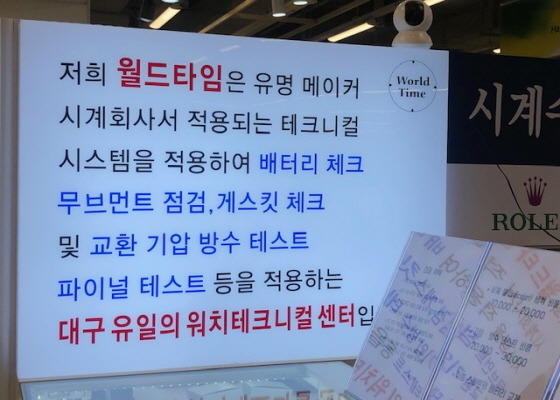 저희 월드타임은 유명 메이커
시계회사서 적용되는 테크니컬
시스템을 적용하여 배터리 체크
무브먼트 점검,게스킷 체크
및 교환 기압 방수 테스트
파이널 테스트 등을 적용하는
대구 유일의 워치테크니컬 센터입
World
Time
시계
ROLE